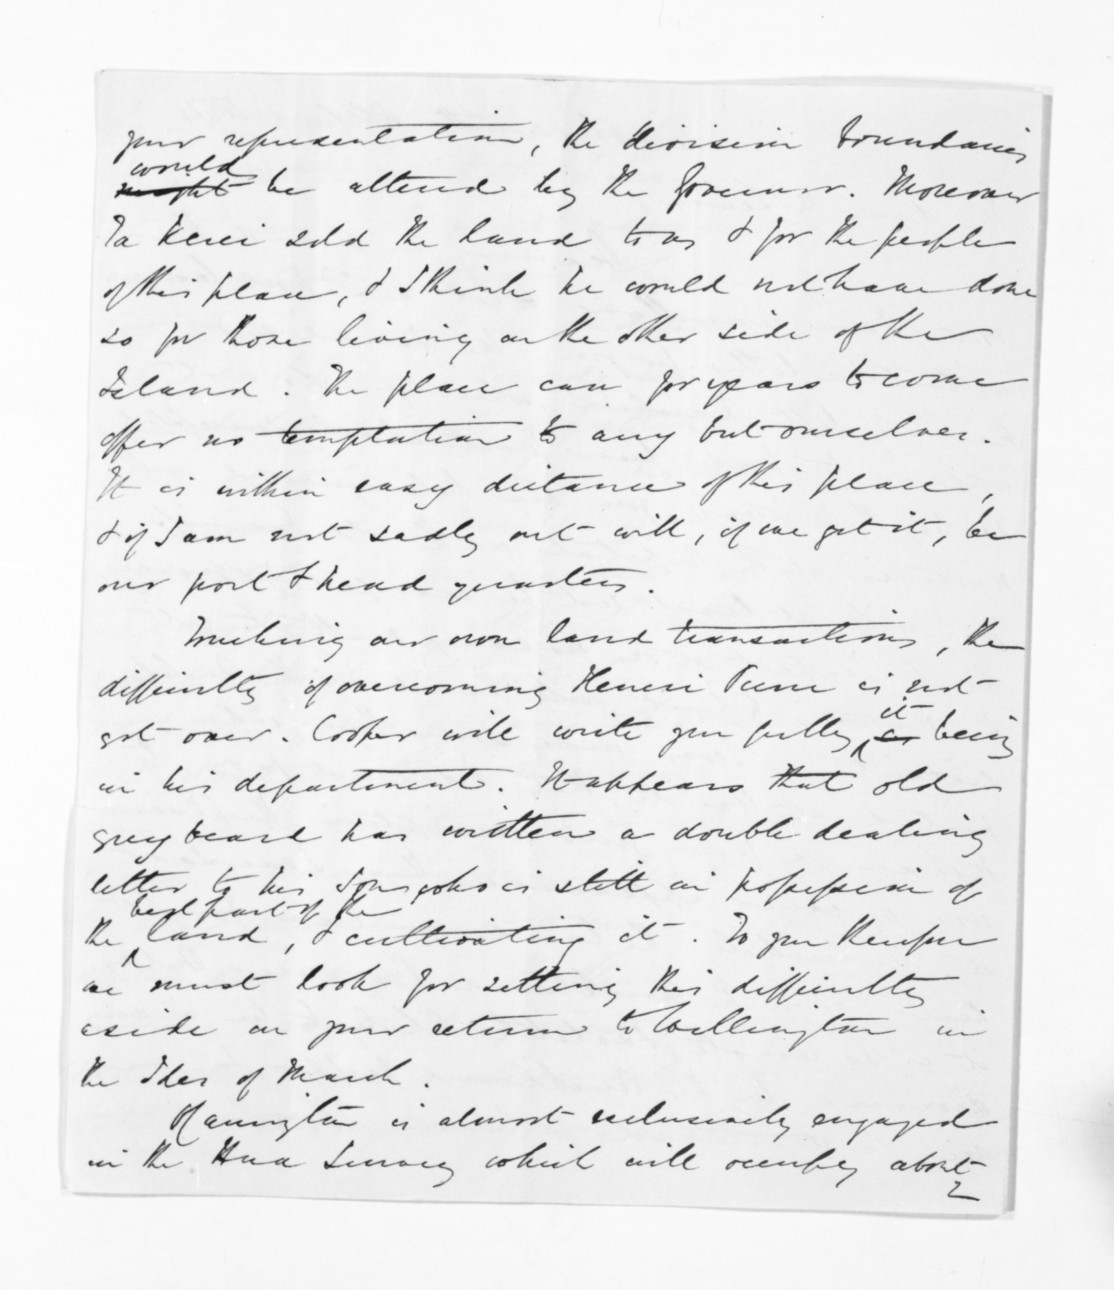 your representation, the division boundaries
would
might be altered by the Governor. Moreover
Te Kerei sold the land to us & for the people
of this place, & I think he would not have done
so for those living on the other side of the
Island. The place can for years to come
offer no temptation to any but ourselves.
It is within easy distance of this place,
& if I am not sadly out will, if we get it, be
our port & head quarters.
Touching our own land transactions, the
difficulty of overcoming Henui is not
it
got over. Cooper will write you fully, as being
in his department. It appears that old
grey beard has written a double dealing
letter to his Son, who is still in possession of
best part of the
the land, & cultivating it. To you therefore
we must look for setting this difficulty
aside on your return to Wellington in
the Ides of March.
is almost exclusively engaged
in the Hua Survey which will occupy about
2